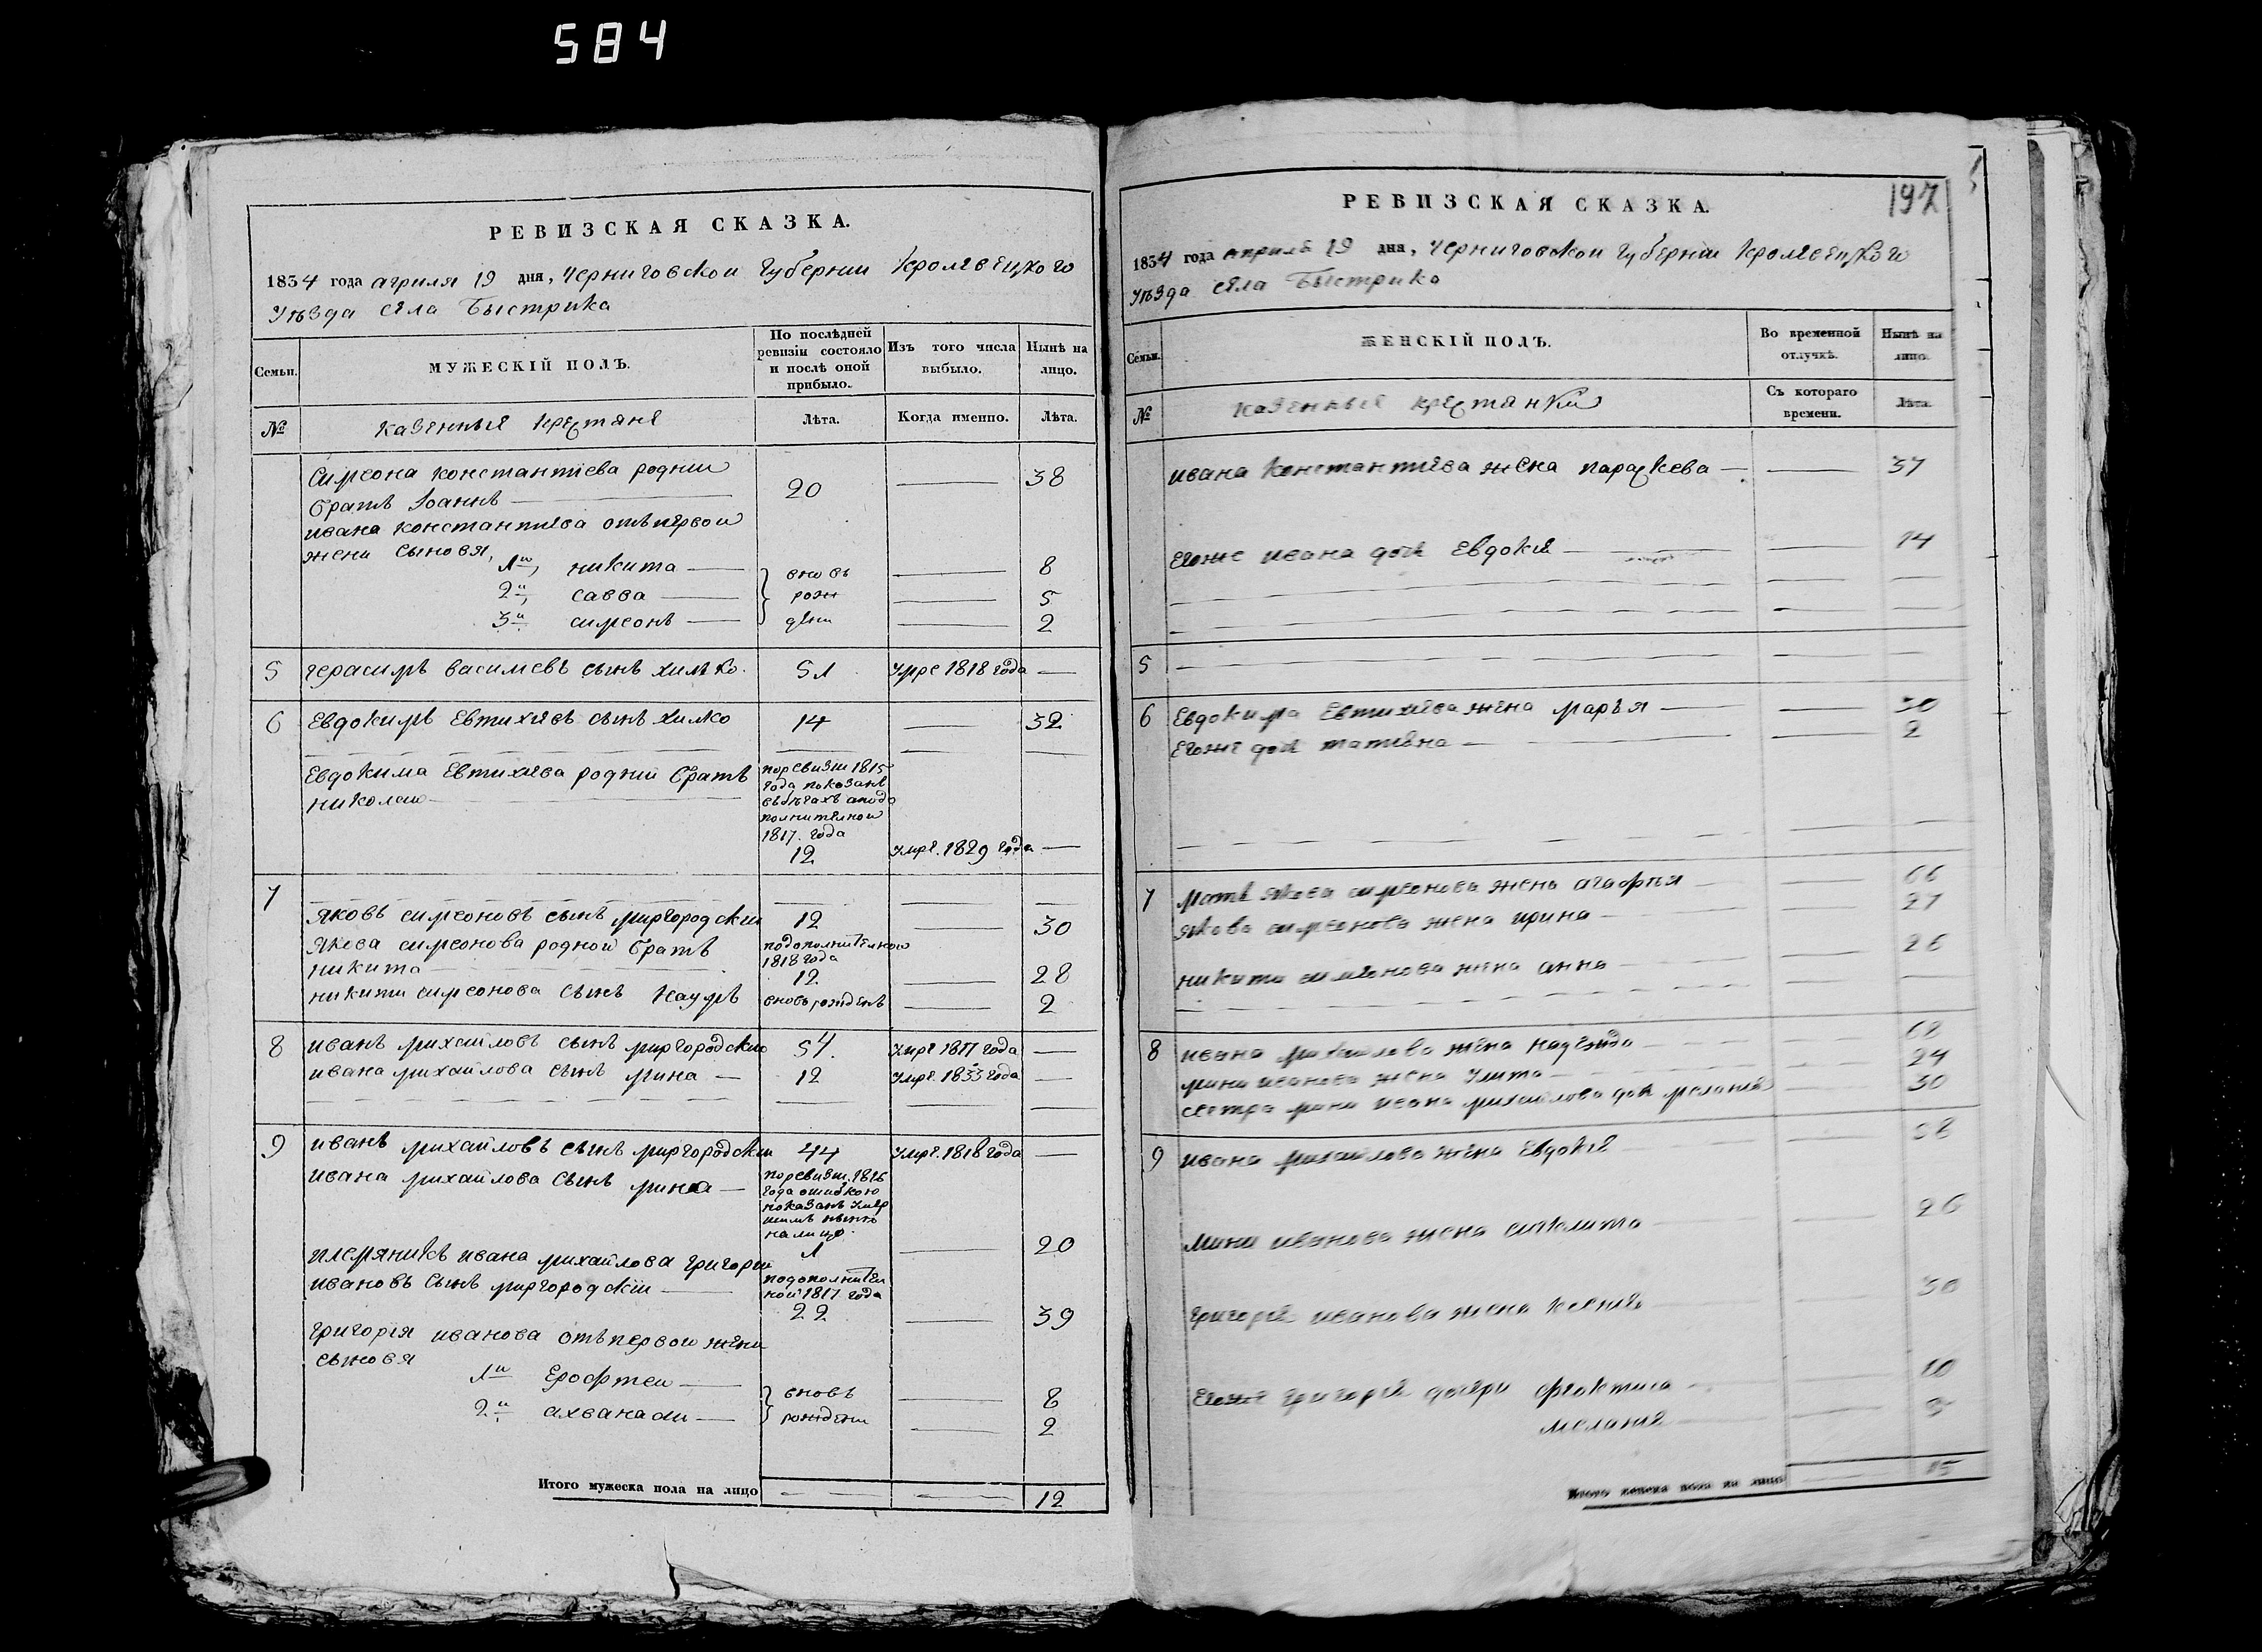 584
РЕВИЗСКАЯ СКАЗКА.
1834 года априля 19 дня, Черниговской Губернии Кролевецкого
Уѣзда села Быстрика
Семьи.
МУЖЕСКІЙ ПОЛЪ.
По послѣдней
ревизіи состояло
и послѣ оной
прибыло.
Изъ того числа
выбыло.
Нынѣ на
лицо.
№
казенные крестяне
Лѣта.
Когда именно.
Лѣта.
Симеона константиева роднии
братъ Іоаннъ 20 38
ивана константиева отъ первои
жени сыновя,
1й, никита вновь 8
2й, савва рож 5
3й симеонъ дени 2
5 герасимъ василиевъ сынъ хилько 51 Умре 1818 года
6 Евдокимъ Евтихиевъ сынъ хилко 14 32
Евдокима Евтихиева роднии братъ
николаи
по ревизии 1815
года показанъ
въ бѣгахъ а по до
полнителнои
1817. года
12 Умре. 1829 года
7
Яковъ симеоновъ сынъ миргородскии 12 30
Якова симеонова роднои братъ
никита
по дополнителнои
1818 года
12 28
никити симеонова сынъ наумъ вновь рожденъ 2
8 иванъ михаиловъ сынъ миргородскии 54. Умре 1817 года
ивана михаилова сынъ мина 12 Умре. 1833 года
9 иванъ михаиловъ сынъ миргородскии 44 Умре. 1818 года
ивана михаилова сынъ мина
по ревизии. 1816
года ошибкою
показанъ Умер
шимъ нынѣ
на лицо.
1 20
племяникъ ивана михаилова григории
ивановъ сынъ миргородскии
по дополнител
нои 1817 года
22 39
григорія иванова отъ первои жени
сыновя
1й Ерофтеи вновь 8
2й ахванасии рождени 2
Итого мужеска пола на лицо 12
197
РЕВИЗСКАЯ СКАЗКА.
1834 года априля 19 дня, Черниговской Губернии Кролевецкого
Уѣзда села Быстрика
Семьи.
ЖЕНСКІЙ ПОЛЪ.
Во временной
отлучкѣ.
Нынѣ на
лицо.
№
казенные крестянки
Съ котораго
времени.
Лѣта.
ивана константиева жена параскева 37
Егоже ивана дочь Евдокия 14
5
6 Евдокима Евтихиева жена марья 30
Егоже дочь татияна 2
7 мать якова симеонова жена агафья 66
якова симеонова жена ирина 27
никити симеонова жена анна 26
8 ивана михаилова жена надежда 68
мини иванова жена Улита 24
сестра мини ивана михаилова дочь мелания 30
9 ивана михаилова жена Евдокия 58
мини иванова жена 26
григория иванова жена ксения 30
Егоже григория дочери феоктиса 10
мелания
Итого женска пола на лицо 15